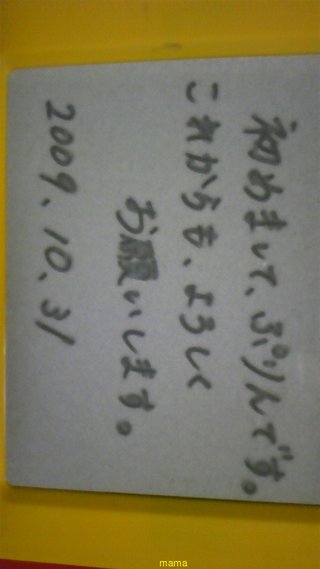 初めまして、ぷりんです。
これからも、よろしく
お願いします。
2009.10.31
mama